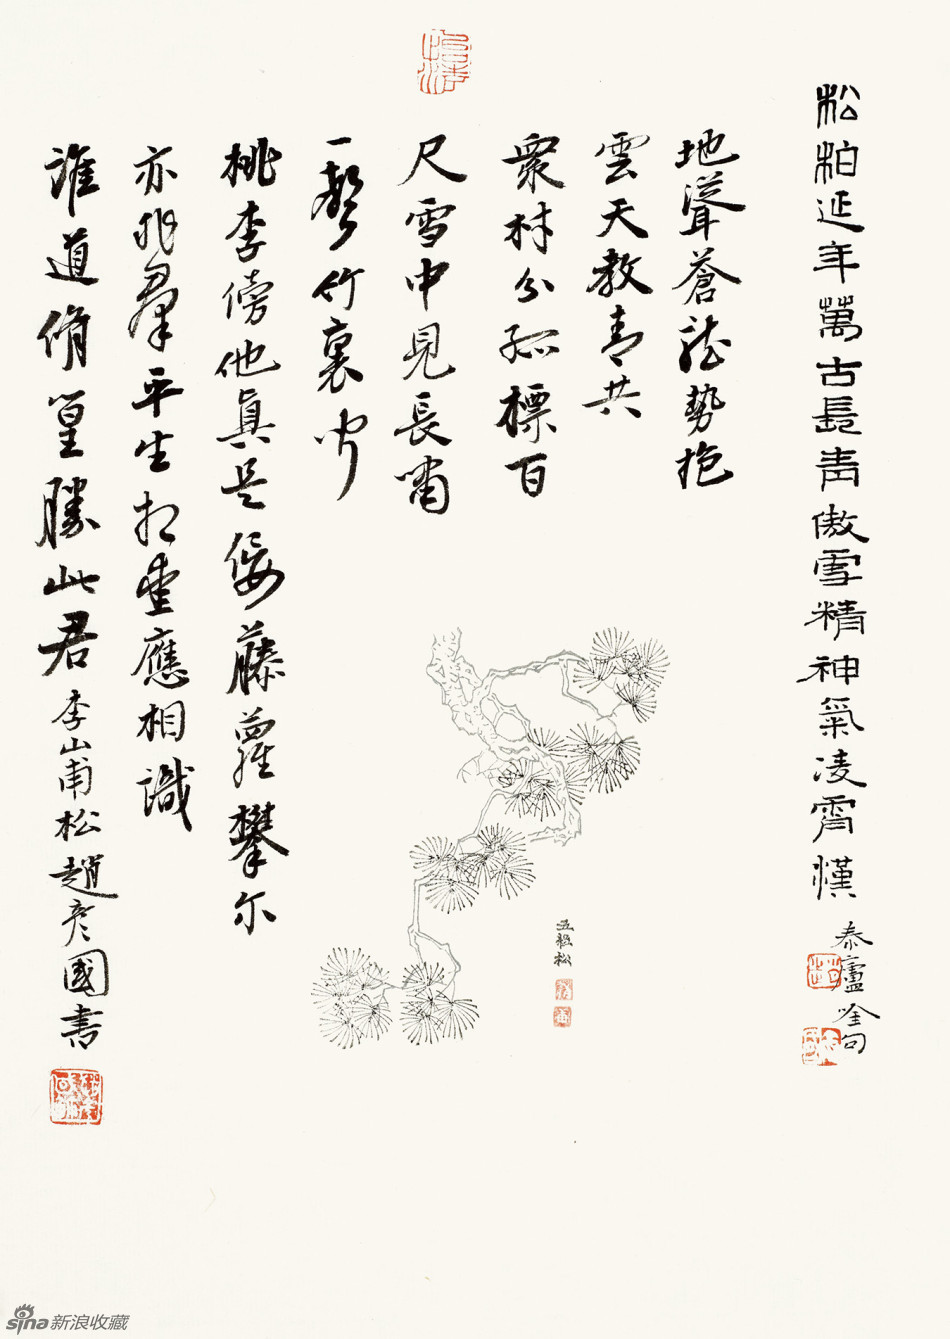 松柏延年萬古長青傲雪精神氣凌霄漢
泰廬唫句
地聳蒼龍勢抱
雲天教青共
衆材分孤標百
尺雪中見長嘯
一聲竹裏聞
桃李傍他眞是佞藤蘿攀尔
亦非羣平生相愛應相識
誰道脩篁勝此君 李山甫松趙彥國書
五粒松
sina新浪收藏